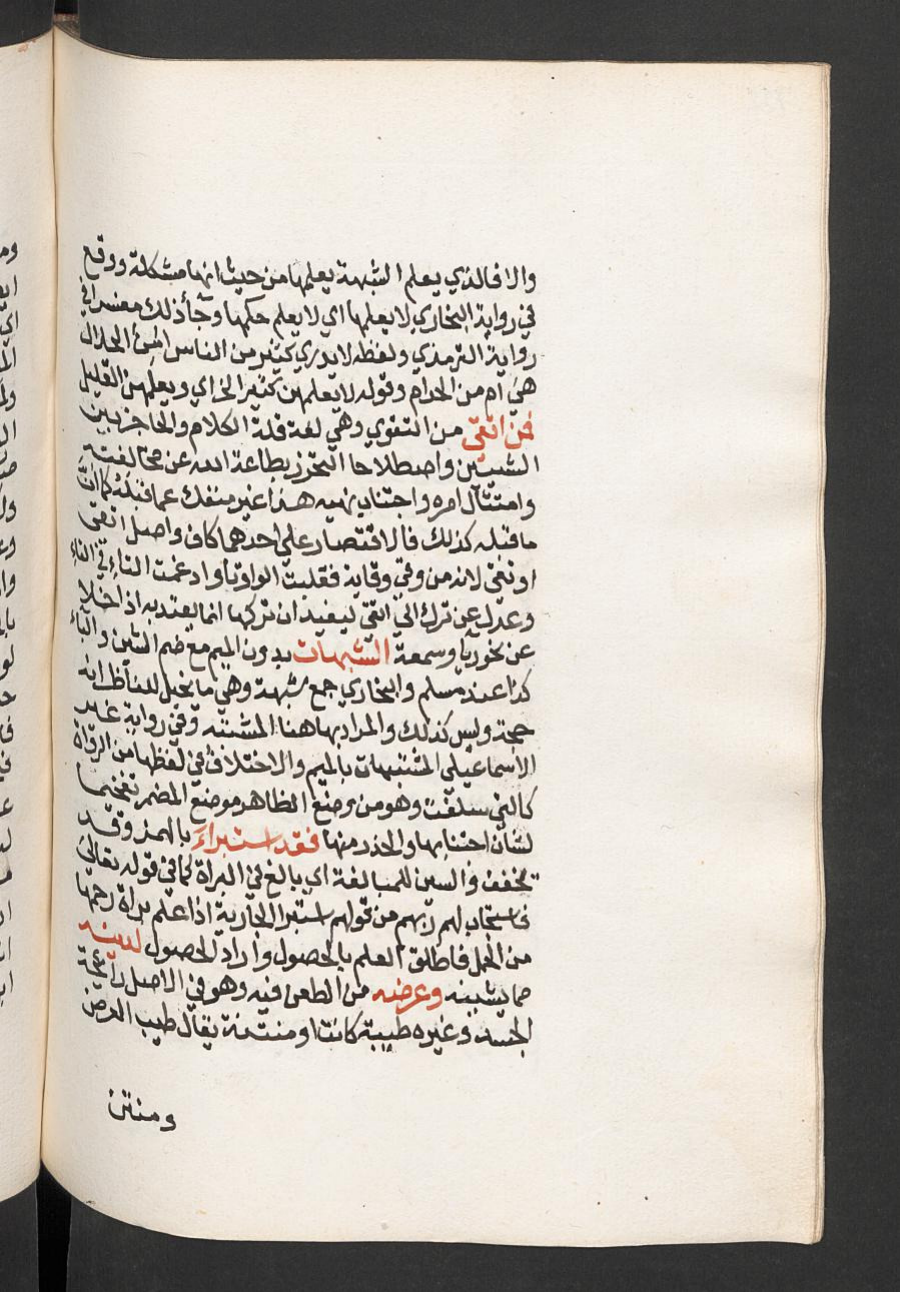 والا فالذي يعلم الشبهة يعلمها من حيث انها مشكلة ووقع
في رواية البخاري لا يعلمها اي لا يعلم حكمها وجآ ذلك مفسرا في
رواية الترمذي ولفظه لا يدري كثير من الناس امن الحلال
هي ام من الحرام وقوله لا يعلمهن كثير الخ اي ويعلمهن القليل
فمن اتقى من التقوي وهي لغة قلة الكلام والحاجز بين
الشيئين واصطلاحا التحرز بطاعة الله عن مخالفته
وامتثال امره واجتناب نهيه هذا غير منفك عما قبله كما ان
ما قبله كذلك فالاقتصار علي احدهما كاف واصل اتقى
اوتقى لانه من وقي وقاية فقلبت الواو تا وادغمت التاء في التاء
وعدل عن ترك الي اتقى ليفيد ان تركها انما يعتد به اذا خلا
عن نحو ريآ وسمعة الشبهات بدون الميم مع ضم الشين والبآء
كذا عند مسلم والبخاري جمع شبهة وهي ما يخيل للناظر انه
حجة وليس كذلك والمراد بها هنا المشتبه وفي رواية غير
الاسماعيلي المشتبهات بالميم والاختلاف في لفظها من الرواة
كالتي سلفت وهو من وضع الظاهر موضع المضمر تفخيما
لشان اجتنابها والحذر منها فقد استبراء بالهمز وقد
تخفف والسين للمبالغة اي بالغ في البراة كما في قوله تعالى
فاستجاب لهم ربهم من قولهم استبرا الجارية اذا علم براة رحمها
من الحمل فاطلق العلم بالحصول واراد الحصول لدينه
مما يشينه وعرضه من الطعن فيه وهو في الاصل رائحة
الجسد وغيره طيبة كانت او منتنة يقال طيب العرض
ومنتن